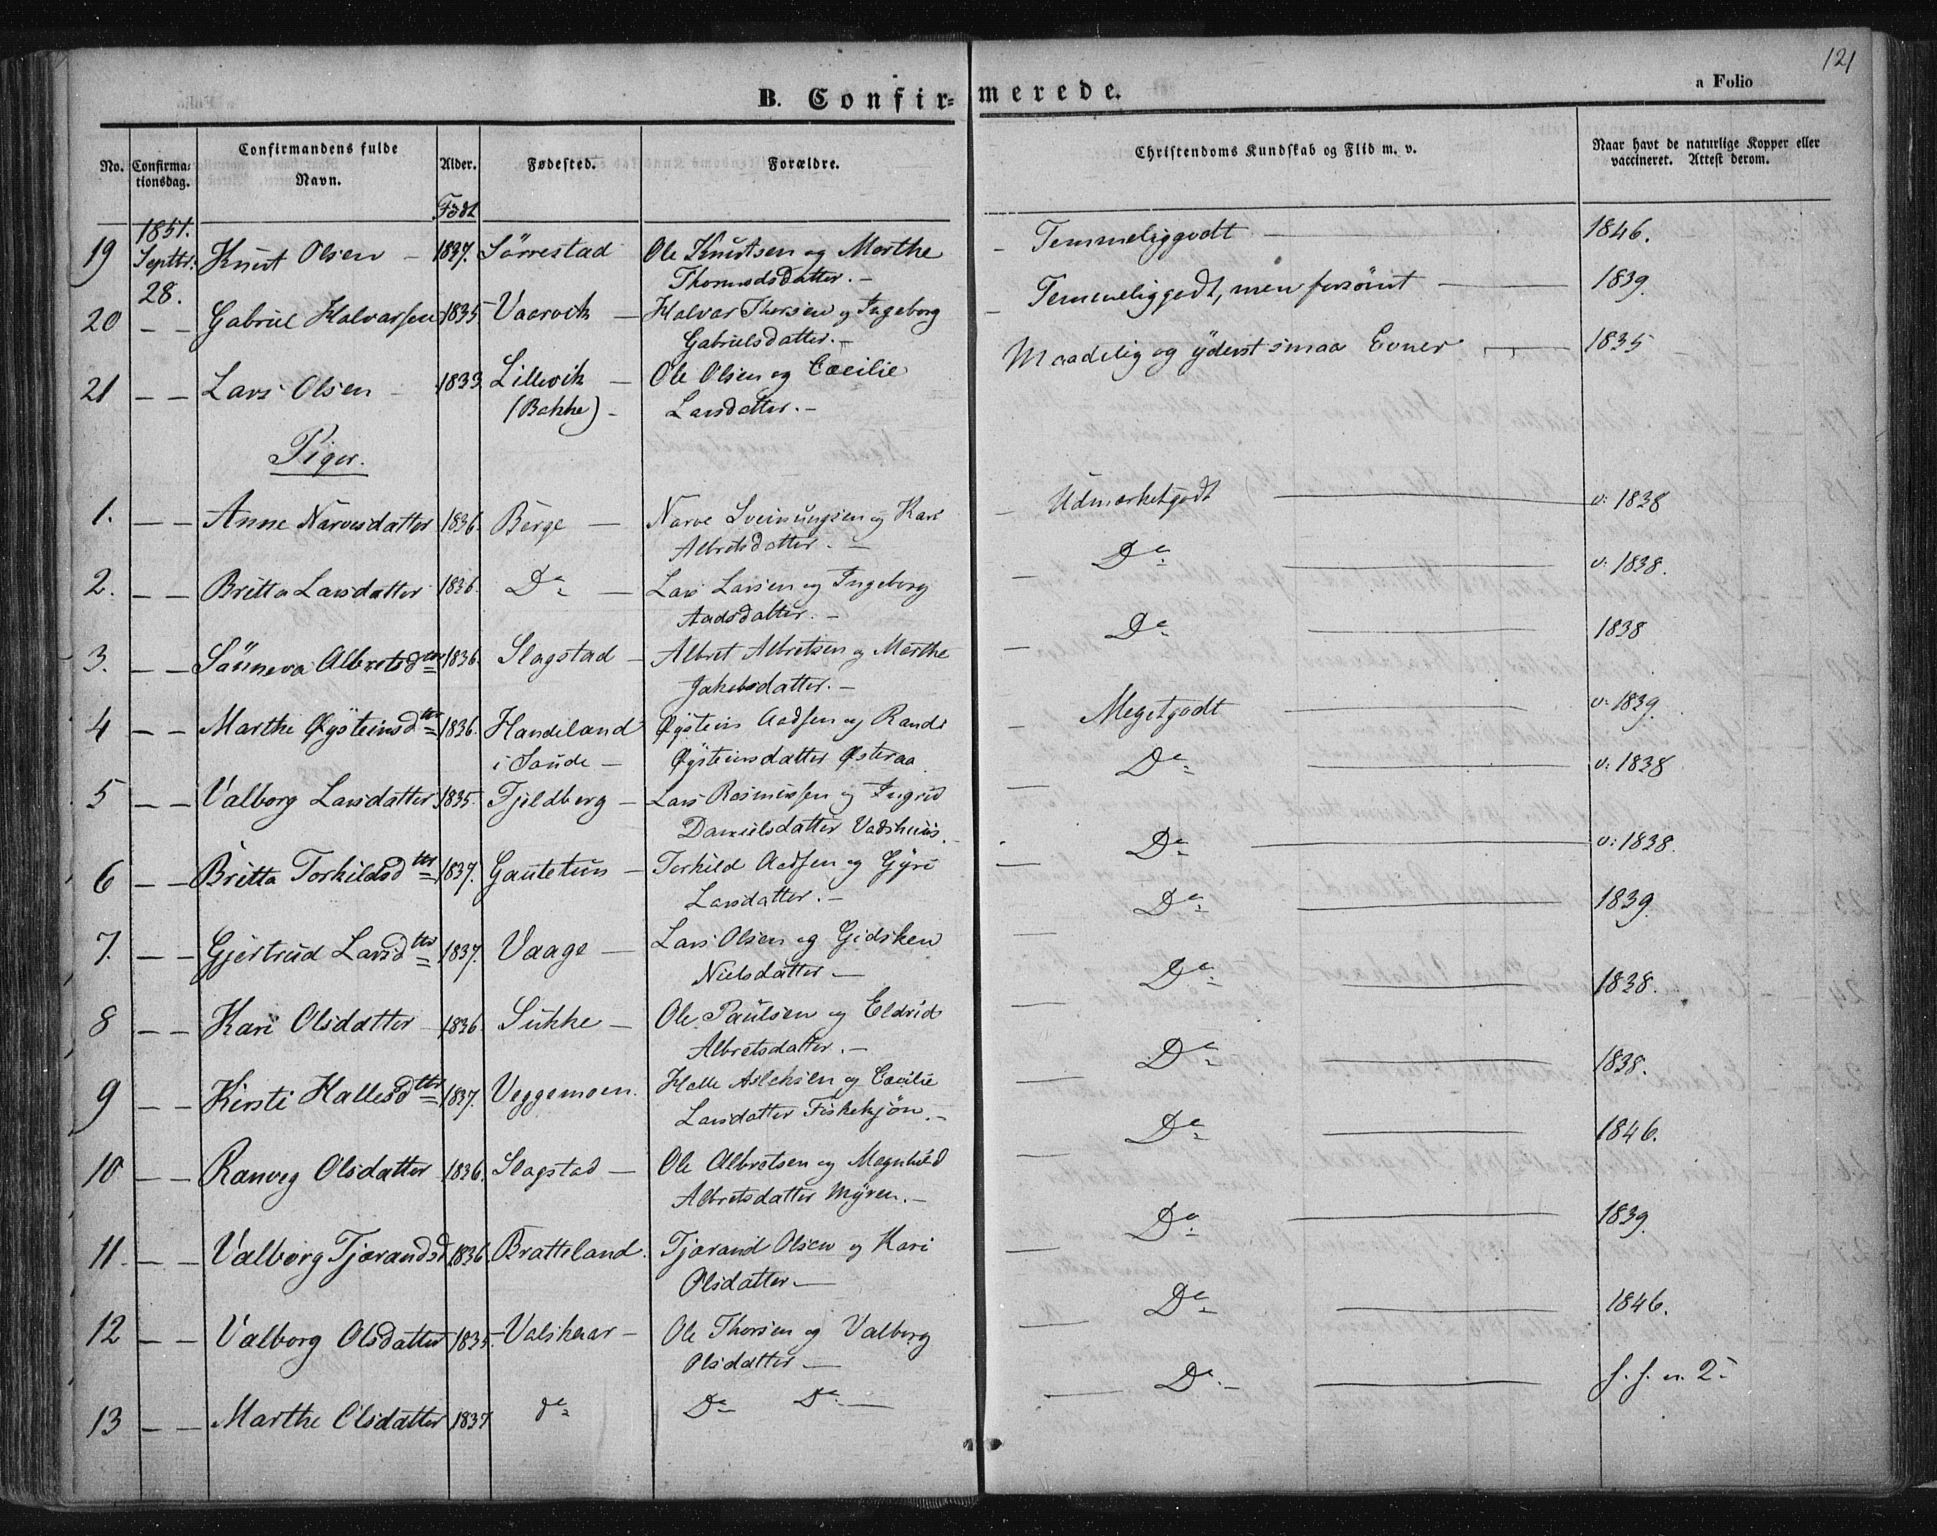 121
B. Confirmerede.
a Folio
No. Confirmationsdag. Confirmandens fulde Navn. Alder. Fødested. Forældre. Christendoms Kundskab og Flid m. v. Naar havt de naturlige Kopper eller vaccineret. Attest derom.
Født
1851.
19 Septbr. 28. Knut Olsen – 1837. Sörrestad Ole Knutsen og Marthe – Temmeliggodt — 1846.
Thormodsdatter. –
20 – – Gabriel Halvorsen 1835 Vaarvik – Halvor Thorsen og Ingeborg – Temmeliggodt, men forsömt — 1839.
Gabrielsdatter. –
21 – – Lars Olsen – 1833. Lillevik – Ole Olsen og Cæcilie Maadelig og yderst smaa Evner — 1835
(Bakke) – Larsdatter. –
Piger.
1. – – Anne Narvesdatter 1836. Berge – Narve Sveinungsen og Kari – Udmærketgodt — v: 1838
Albretsdatter. –
2. – – Britta Larsdatter 1836. Do – Lars Larsen og Ingeborg – Do — v: 1838.
Aadsdatter. –
3. – – Sönneva Albretsdtr 1836. Slagstad – Albret Albretsen og Marthe – Do — 1838
Jakobsdatter. –
4 – – Marthe Øysteinsdtr 1836. Handeland Øystein Aadsen og Randi – Megetgodt — v: 1839.
i Saude – Øysteinsdatter Østeraa
5 – – Valborg Larsdatter 1835. Fjeldberg – Lars Rasmussen og Ingrid — Do — v: 1838
Danielsdatter Vadshuus. –
6 – – Britta Torkildsdtr 1837. Gautetun – Torkild Aadsen og Gyri — Do — v: 1838.
Larsdatter. –
7. – – Gjertrud Larsdtr 1837. Vaage – Lars Olsen og Gidsken — Do — 1839.
Nielsdatter –
8 – – Kari Olsdatter – 1836. Sukke – Ole Paulsen og Eldrid — Do — 1838.
Albretsdatter. –
9 – – Kirsti Hallesdtr 1837. Veggemoen. Halle Aslaksen og Cæcilie — Do — 1838.
Larsdatter Fiskekjön. –
10 – – Ranveg Olsdatter 1836. Slagstad – Ole Albretsen og Magnhild — Do — 1846.
Albretsdatter Myren. –
11 – – Valborg Tjerandsd 1836. Bratteland. Tjerand Olsen og Kari — Do — 1839.
Olsdatter –
12 – – Valborg Olsdatter 1835. Valskaar – Ole Thorsen og Valborg — Do — 1846.
Olsdatter –
13 – – Marthe Olsdatter 1837 do Do Do. — Do. — f. f. n. 2.